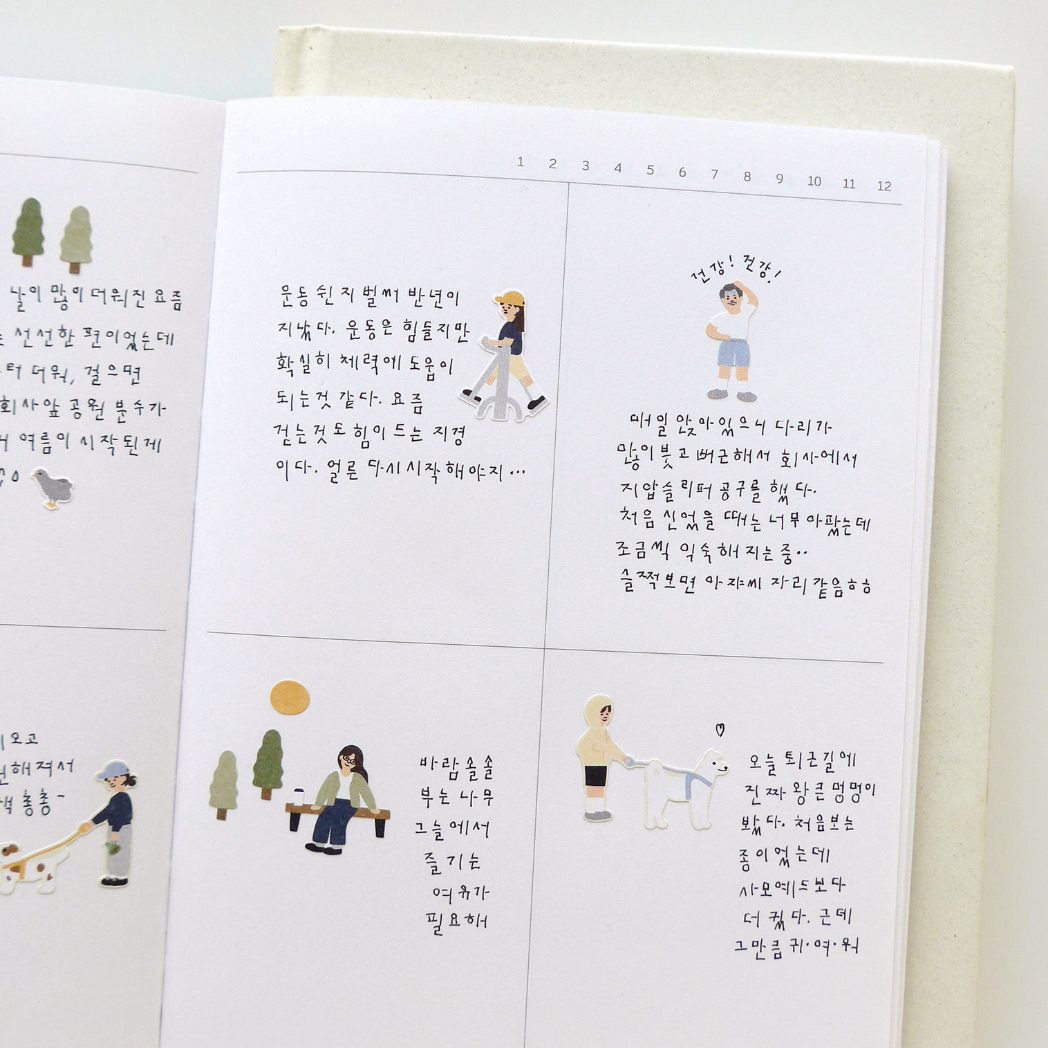 날이 많이 더워진 요즘
선선한 편이었는데
더워, 걸으면
회사앞 공원 분수가
여름이 시작된게
오고
해져서
총총~
1 2 3 4 5 6 7 8 9 10 11 12
운동 쉰지 벌써 반년이
지났다. 운동은 힘들지만
확실히 체력에 도움이
되는것 같다. 요즘
걷는것도 힘이 드는 지경
이다. 얼른 다시 시작해야지...
건강! 건강!
매일 앉아있으니 다리가
많이 붓고 뻐근해서 회사에서
지압슬리퍼 공구를 했다.
처음 신었을 때는 너무 아팠는데
조금씩 익숙해지는 중..
슬쩍보면 아자씨 자리 같음ㅎㅎ
바람 솔솔
부는 나무
그늘에서
즐기는
여유가
필요해
오늘 퇴근길에
진짜 왕큰 멍멍이
봤다. 처음보는
종이었는데
사모예드보다
더 컸다. 근데
그만큼 귀·여·워